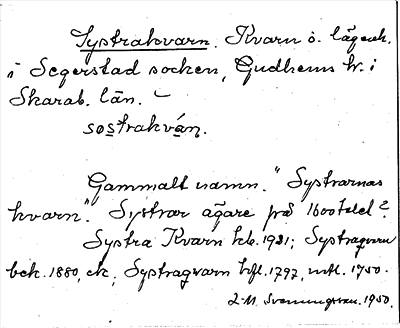 Systrakvarn. Kvarn o. lägenh.
i Segerstad socken, Gudhems hr. i
Skarab. län. –
sɷstrakván.
Gammalt namn. "Systrarnas
kvarn". Systrar ägare på 1600talet?
Systra Kvarn hlb. 1921; Systragvarn
bek. 1880, ek; Systragvarn hfl. 1797, mfl. 1750.
L-M. Svenningsson. 1950.